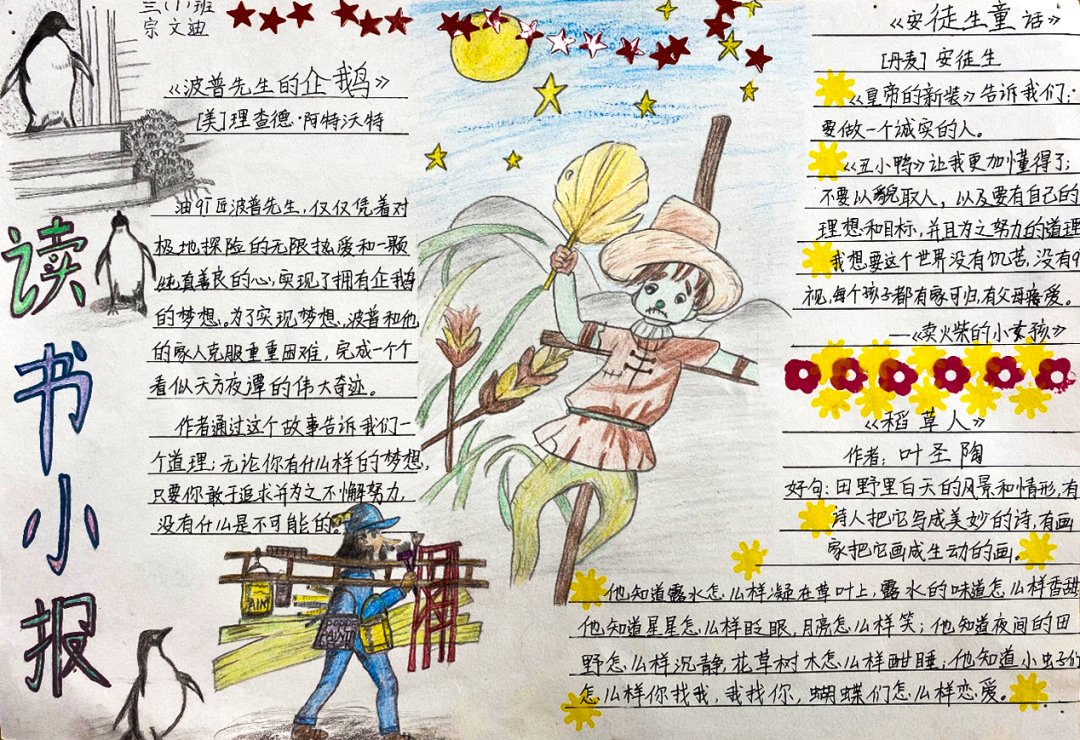 三(1)班
宗文迪
读书小报
《波普先生的企鹅》
[美]理查德·阿特沃特
油匠波普先生,仅仅凭着对
极地探险的无限热爱和一颗
纯真善良的心,实现了拥有企鹅
的梦想。为了实现梦想,波普和他
的家人克服重重困难,完成一个个
看似天方夜谭的伟大奇迹。
作者通过这个故事告诉我们一
个道理:无论你有什么样的梦想,
只要你敢于追求并为之不懈努力,
没有什么是不可能的。
PAINT
《安徒生童话》
[丹麦]安徒生
《皇帝的新装》告诉我们:
要做一个诚实的人。
《丑小鸭》让我更加懂得了:
不要以貌取人,以及要有自己的
理想和目标,并且为之努力的道理
我想要这个世界没有饥苦,没有
视,每个孩子都有家可归,有父母疼爱。
—《卖火柴的小女孩》
《稻草人》
作者:叶圣陶
好句:田野里白天的风景和情形,有
诗人把它写成美妙的诗,有画
家把它画成生动的画。
他知道露水怎么样凝在草叶上,露水的味道怎么样香甜
他知道星星怎么样眨眼,月亮怎么样笑;他知道夜间的田
野怎么样沉静,花草树木怎么样酣睡;他知道小虫子们
怎么样你找我,我找你,蝴蝶们怎么样恋爱。